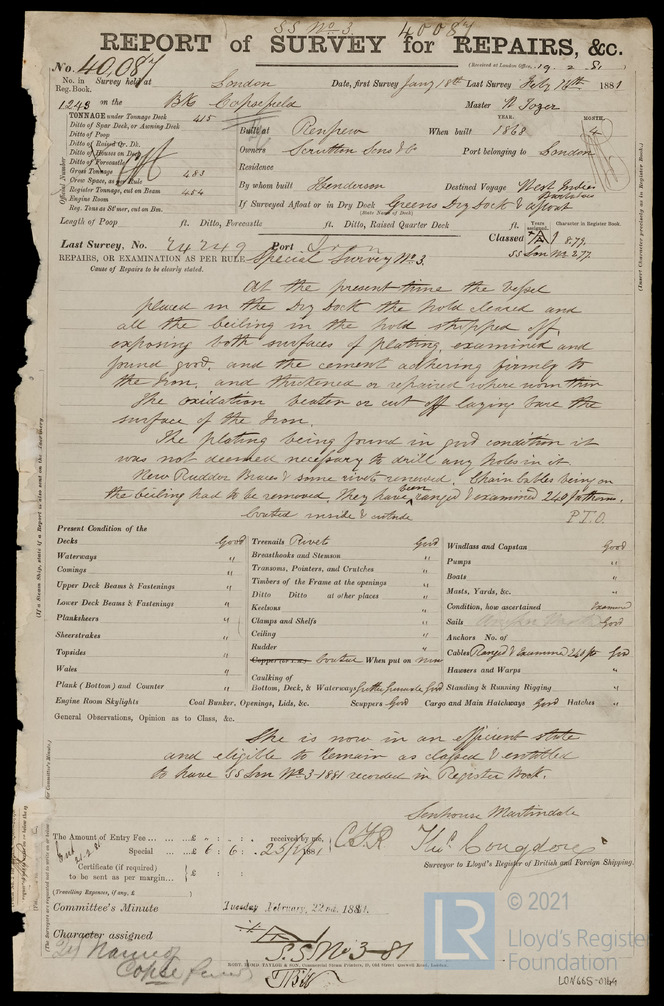 SS No. 3 40087
REPORT of SURVEY for REPAIRS, &c.
No. 40,087 (Received at London Office, 19 . 2 . 81
No. in Survey held at London Date, first Survey Jany 18th Last Survey Feby 16th 1881
Reg. Book.
1243 on the Bk Copsefield Master W Tozer
TONNAGE under Tonnage Deck 415
Ditto of Spar Deck, or Awning Deck
Ditto of Poop
Ditto of Raised Qr. Dk.
Ditto of Houses on Deck
Ditto of Forecastle
Gross Tonnage 483
Crew Space, as per Rule
Register Tonnage, cut on Beam 454
Engine Room
Reg. Tons as St'mer, cut on Bm.
Official Number
YEAR. MONTH.
Built at Renfrew When built 1868 4
Owners Scrutton Sons & Co Port belonging to London
Residence
By whom built Henderson Destined Voyage West Indies
If Surveyed Afloat or in Dry Dock Greens Dry Dock & Afloat
(State Name of Dock)
Length of Poop ft. Ditto, Forecastle ft. Ditto, Raised Quarter Deck ft.
Years assigned. Character in Register Book.
Last Survey, No. 24249 Port Lon Classed A 1 8,79.
SS Lon No 2 77
REPAIRS, OR EXAMINATION AS PER RULE Special Survey No 3.
Cause of Repairs to be clearly stated.
At the present time the vessel
placed in the Dry Dock the hold cleared and
all the ceiling in the hold stripped off
exposing both surfaces of plating examined and
found good. and the cement adhering firmly to
the Iron, and thickened or repaired where worn thin
The oxidation beaten or cut off laying bare the
surface of the Iron.
The plating being found in good condition it
was not deemed necessary to drill any holes in it.
New Rudder Braces & some rivets renewed. Chain Cables being on
the ceiling had to be removed. They have been ranged & examined 240 fathoms.
Coated inside & outside P.T.O.
Present Condition of the
Decks Good
Waterways "
Comings "
Upper Deck Beams & Fastenings "
Lower Deck Beams & Fastenings "
Planksheers "
Sheerstrakes "
Topsides "
Wales "
Plank (Bottom) and Counter "
Treenails Rivets Good
Breasthooks and Stemson "
Transoms, Pointers, and Crutches "
Timbers of the Frame at the openings "
Ditto Ditto at other places "
Keelsons "
Clamps and Shelfs "
Ceiling "
Rudder "
Coated When put on now
Caulking of
Bottom, Deck, & Waterways Good
Windlass and Capstan Good
Pumps "
Boats "
Masts, Yards, &c. "
Condition, how ascertained Examined
Sails Good
Anchors No. of "
Cables Ranged & Examined 240 fms Good
Hawsers and Warps "
Standing & Running Rigging "
Engine Room Skylights Coal Bunker, Openings, Lids, &c. Scuppers Good Cargo and Main Hatchways Good Hatches "
General Observations, Opinion as to Class, &c.
She is now in an efficient state
and eligible to remain as classed & entitled
to have SS Lon No 3-1881 recorded in Register Book.
Senhouse Martindale
The Amount of Entry Fee ... ... £ " : " : " received by me,
Special ... ... £ 6 : 6 : . 23/2/1881
Certificate (if required)
to be sent as per margin... £ :
(Travelling Expenses, if any, £ )
Thos. Congdon
Surveyor to Lloyd's Register of British and Foreign Shipping.
Committee's Minute Tuesday February, 22nd. 1881.
Character assigned A 1
S.S No 3-81
(Insert Character precisely as in Register Book.)
(If a Steam Ship, state if a Report is also sent on the Machinery.
© 2021
LR
Lloyd's Register
Foundation
LON665-0164